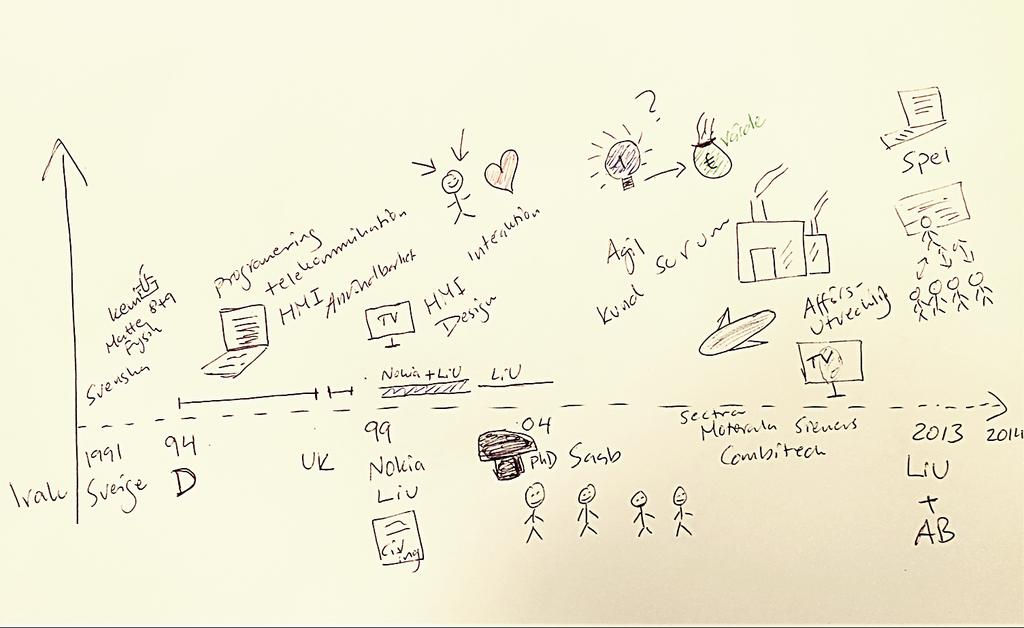 ?
värde
€
Spel
programering
telekommunikation
HMI Användbarhet
Interaktion
HMI
Design
TV
Agil
scrum
Kund
Affärs-
utveckling
TV
Kemi
Matte 8+9
Fysik
Svenska
Nokia + LiU
LiU
1991
Sverige
94
D
UK
99
Nokia
LiU
Civ
ing
04
PhD
Saab
Sectra
Motorola Siemens
Combitech
2013
LiU
+
AB
2014
Irak